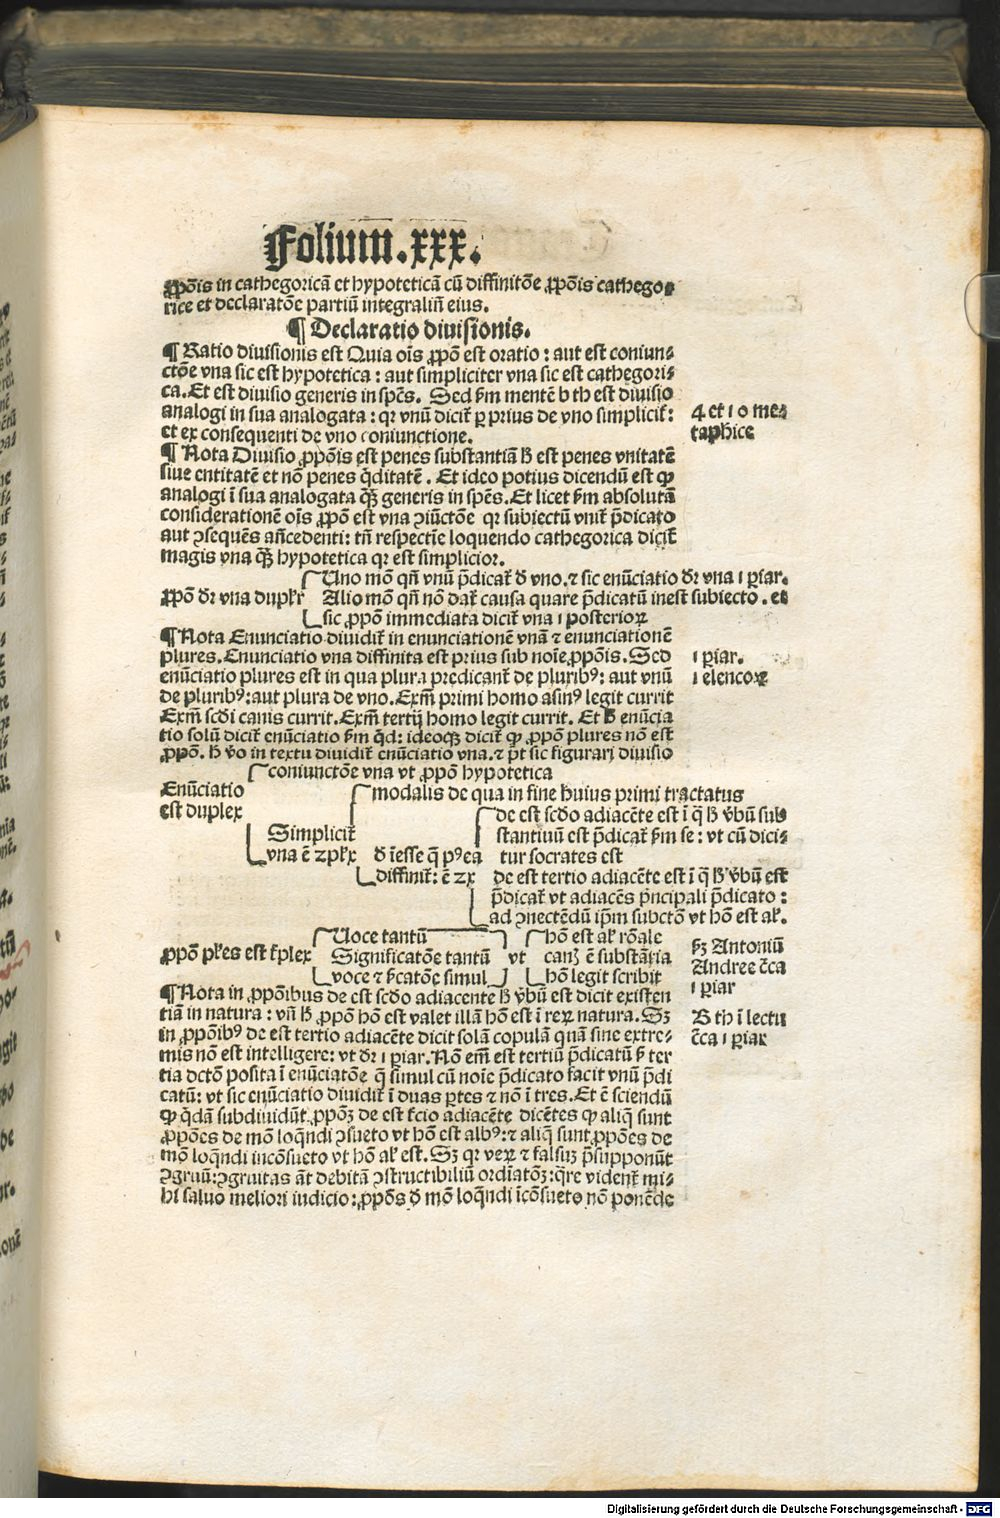 Folium.xxx.
ꝓpōis in cathegoricā et hypoteticā cū diffinitōe ꝓpōis cathego⸗
rice et declaratōe partiū integraliū eius.
¶ Declaratio diuisionis.
¶ Ratio diuisionis est Quia oīs ꝓpō est oratio : aut est coniun⸗
ctōe vna sic est hypotetica : aut simpliciter vna sic est cathegori⸗
ca. Et est diuisio generis in spēs. Sed ẜm mentē b th est diuisio
analogi in sua analogata : qꝛ vnū diciť ꝑ prius de vno simpliciť:
et ex consequenti de vno coniunctione.
4 et 10 me⸗
taphice
¶ Nota Diuisio ꝓpōis est penes substantiā hͦ est penes vnitatē
siue entitatē et nō penes q̄ditatē. Et ideo potius dicendū est ꝙ
analogi ī sua analogata q̄ꝫ generis in spēs. Et licet ẜm absolutā
considerationē oīs ꝓpō est vna ꝯiūctōe qꝛ subiectū vniť p̄dicato
aut ꝯsequēs añcedenti: tñ respectiē loquendo cathegorica diciť
magis vna q̄ꝫ hypotetica qꝛ est simplicior.
Uno mō qñ vnū p̄dicať ď vno. ⁊ sic enūciatio dꝛ vna 1 ꝑiar.
ꝓpō dꝛ vna duplr Alio mō qñ nō dať causa quare p̄dicatū inest subiecto. et
sic ꝓpō immediata diciť vna 1 posterioꝝ
¶ Nota Enunciatio diuidiť in enunciationē vnā ⁊ enunciationē
plures. Enunciatio vna diffinita est prius sub noīe ꝓpōis. Sed
1 ꝑiar.
enūciatio plures est in qua plura predicanť de pluribꝰ: aut vnū
1 elencoꝝ
de pluribꝰ: aut plura de vno. Exm̄ primi homo asinꝰ legit currit
Exm̄ scďi canis currit. Exm̄ tertij homo legit currit. Et hͦ enūcia
tio solū diciť enūciatio ẜm q̄d: ideoqꝫ diciť ꝙ ꝓpō plures nō est
ꝓpō. hͦ v̄o in textu diuidiť enūciatio vna. ⁊ pꝫ sic figurari diuisio
coniunctōe vna vt ꝓpō hypotetica
Enūciatio
est duplex
modalis de qua in fine huius primi tractatus
de est scďo adiacēte est ī q̄ hͦ v̄bū sub
Simpliciť
stantiuū est p̄dicať ẜm se : vt cū dici⸗
vna ē ꝛplex ď īesse q̄ pꝰea tur socrates est
diffiniť: ē ꝛx de est tertio adiacēte est ī q̄ hͦ v̄bū est
p̄dicať vt adiacēs p̄ncipali p̄dicato :
ad ꝯnectēdū ip̄m subctō vt hō est al̵.
Uoce tantū hō est al̵ rōale
ꝓpō pl̵es est tͥplex Significatōe tantū vt canꝫ ē substātia
voce ⁊ ẜcatōe simul hō legit scribit
ẜꝫ Antoniū
Andree c̄ca
1 ꝑiar
¶ Nota in ꝓpōibus de est scďo adiacente hͦ v̄bū est dicit existen
tiā in natura : vñ hͦ ꝓpō hō est valet illā hō est ī reꝝ natura. Sꝫ
B th ī lectu
in ꝓpōibꝰ de est tertio adiacēte dicit solā copulā quā sine extre⸗
c̄ca 1 ꝑiar
mis nō est intelligere: vt dꝛ 1 ꝑiar. Nō em̄ est tertiū p̄dicatū ẜ ter
tia dctō posita ī enūciatōe q̄ simul cū noīe p̄dicato facit vnū p̄di
catū: vt sic enūciatio diuidiť ī duas ꝑtes ⁊ nō ī tres. Et ē sciendū
ꝙ q̄dā subdiuidūt ꝓpōꝫ de est tͥcio adiacēte dicētes ꝙ aliq̄ sunt
ꝓpōes de mō loq̄ndi ꝯsueto vt hō est albꝰ: ⁊ aliq̄ sunt ꝓpōes de
mō loq̄ndi incōsueto vt hō al̵ est. Sꝫ qꝛ veꝝ ⁊ falsuꝫ p̄supponūt
ꝯgruū: ꝯgruitas āt debitā ꝯstructibiliū ordīatōꝫ: q̄re videnť mi⸗
hi saluo meliori iudicio: ꝓpōs ď mō loq̄ndi īcōsueto nō ponēde
Digitalisierung gefördert durch die Deutsche Forschungsgemeinschaft - DFG